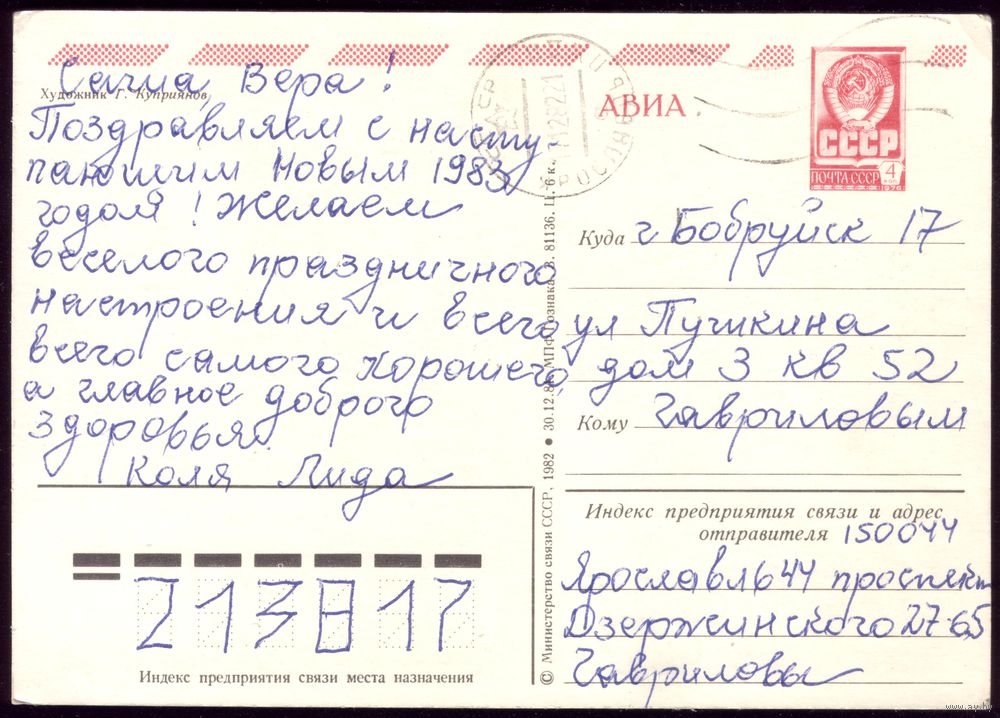 Саша, Вера!
Художник Г. Куприянов
Поздравляем с насту-
пающим Новым 1983
годом! Желаем
веселого праздничного
настроения и всего
всего самого хорошего,
а главное доброго
здоровья.
Коля Лида
АВИА
СССР
ПОЧТА СССР 4 коп
1976
Куда г Бобруйск 17
ул Пушкина
дом 3 кв 52
Кому Гавриловым
Индекс предприятия связи и адрес
отправителя 150044
Ярославль 44 проспект
Дзержинского 27-65
Гавриловы
213817
Индекс предприятия связи места назначения
© Министерство связи СССР, 1982 • 30.12.81. МПФ Гознака. З. 81136. Ц. 6 к.
www.ay.by